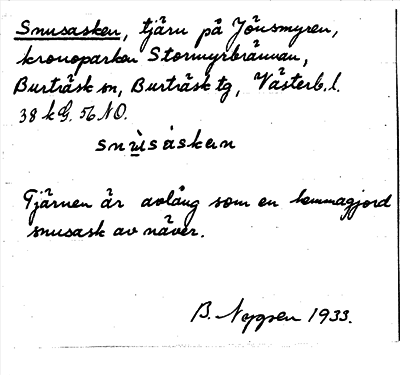 Snusasken, tjärn på Jönsmyren,
kronoparken Stormyrbrännan,
Burträsk sn, Burträsk tg, Västerb. l.
38 k G. 56 NO.
snùsáskan
Tjärnen är avlång som en hemmagjord
snusask av näver.
B. 1933.